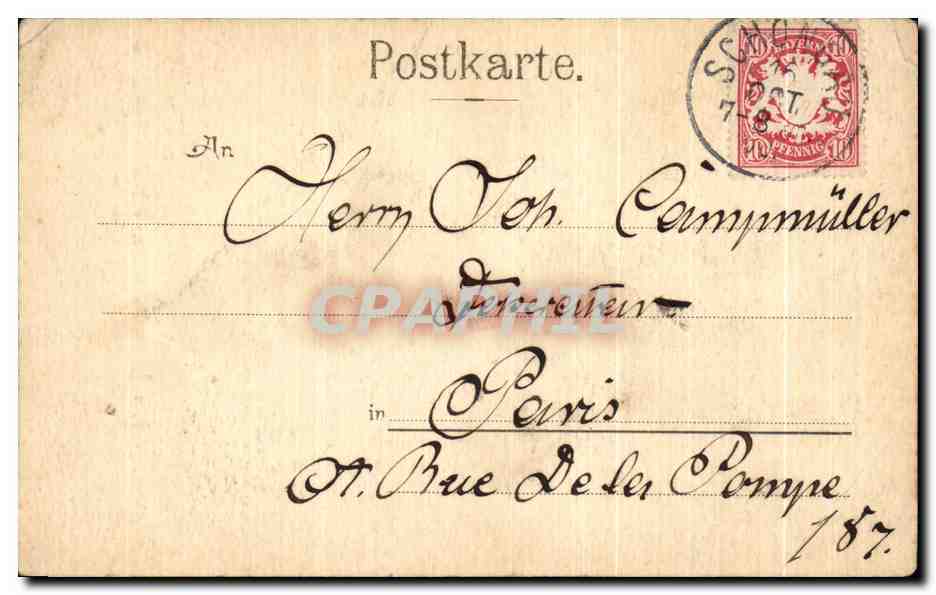 Postkarte.
BAYERN
10 10
PFENNIG
10 10
OCT.
7-8
An
Herrn Joh. Campmüller
CPAPHIL
in Paris
A. Rue De la Pompe
187.